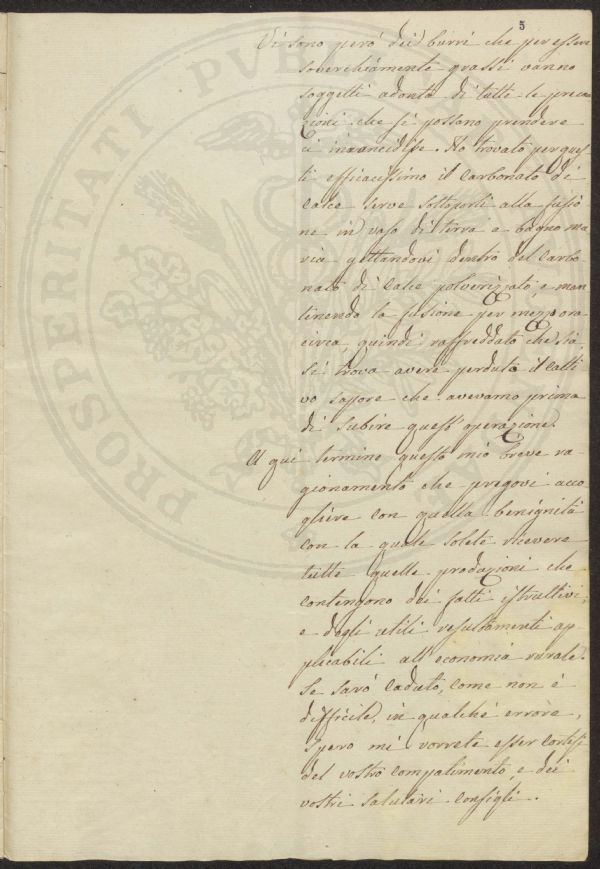 5
Vi sono peró dei burri che per essere
soverchiamente grassi vanno
soggetti adonta di tutti le precau
zioni che si possono prendere
ci inrancidise. Ho trovato per ques
ti efficacissimo il Carbonato di
Calce serve sottoporli alla fusio
ne in vaso di terra e bagno ma
ria gettandovi dentro del Carbo
nato di Calce polverizzato, e man
tenendo la fusione per mezz'ora
circa, quindi raffreddato che sia,
si trova avere perduto il catti
vo sapore che avevamo prima
di subire quest'operazione.
A qui termine questo mio breve ra
gionamento che pregovi acco
gliere con quella benignità
con la quale solete ricevere
tutte quelle produzioni che
contengono dei fatti istruttivi,
e degli utili resultamenti ap
plicabili all'economia rurale.
Se saró caduto, come non é
difficile, in qualche errore,
spero mi vorrete esser cortesi
del vostro compatimento, e dei
vostri salutari consigli.
PROSPERITATI PUB